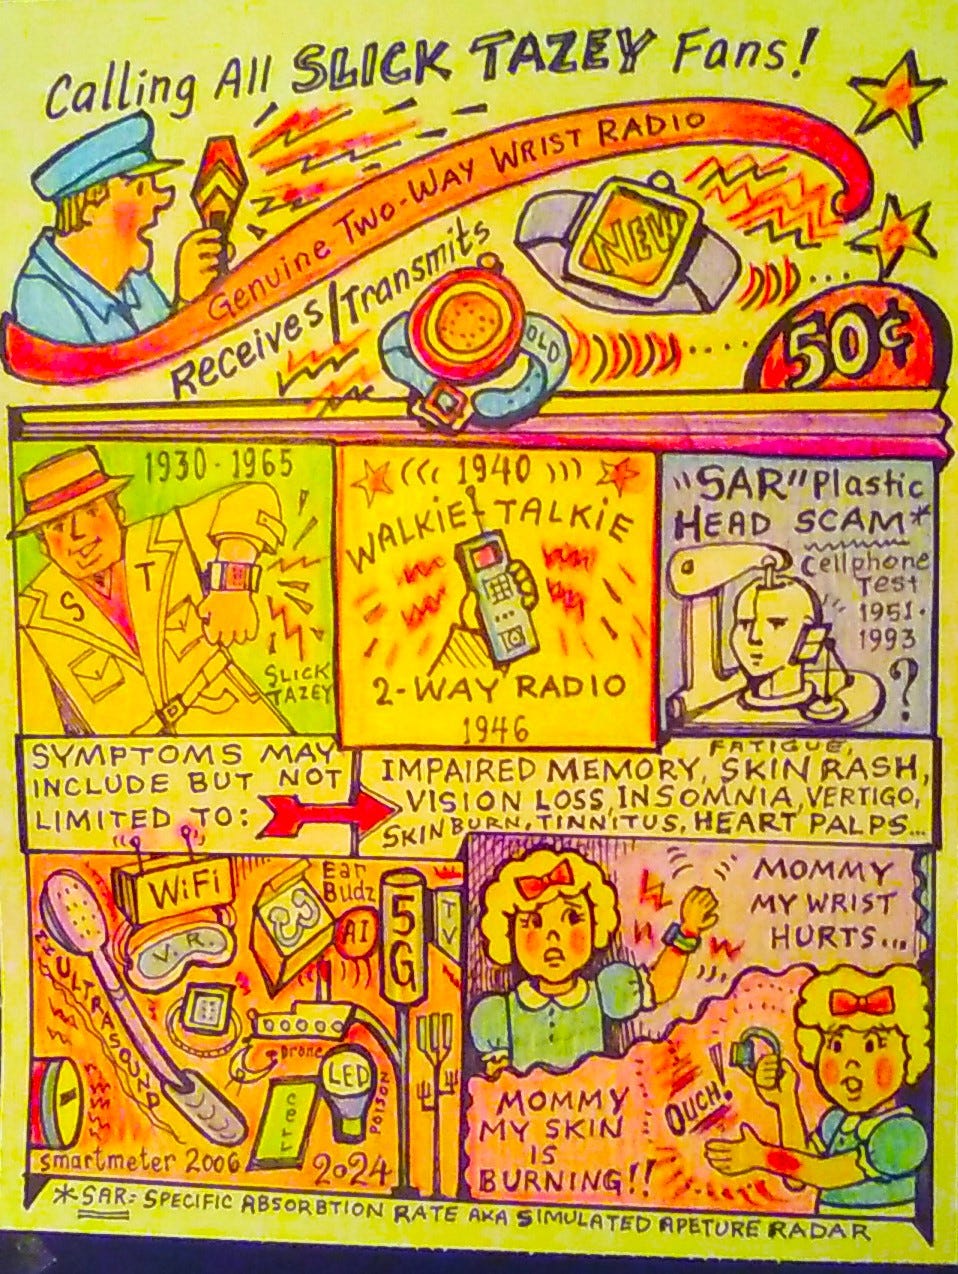 Calling All SLICK TAZEY Fans!
Genuine Two-Way Wrist Radio
Receives/Transmits
NEW
OLD
50¢
1930-1965
S T
SLICK
TAZEY
((( 1940 )))
WALKIE-TALKIE
2-WAY RADIO
1946
"SAR" Plastic
HEAD SCAM*
Cellphone
Test
1951-
1993
?
SYMPTOMS MAY
INCLUDE BUT NOT
LIMITED TO:
FATIGUE,
IMPAIRED MEMORY, SKIN RASH,
VISION LOSS, INSOMNIA, VERTIGO,
SKIN BURN, TINNITUS, HEART PALPS...
WiFi
V.R.
Ear
Budz
AI
5G
TV
ULTRASOUND
Drone
LED
POISON
Cell
smartmeter 2006
2024
MOMMY
MY WRIST
HURTS...
MOMMY
MY SKIN
IS
BURNING!!
OUCH!
*SAR= SPECIFIC ABSORBTION RATE AKA SIMULATED APETURE RADAR